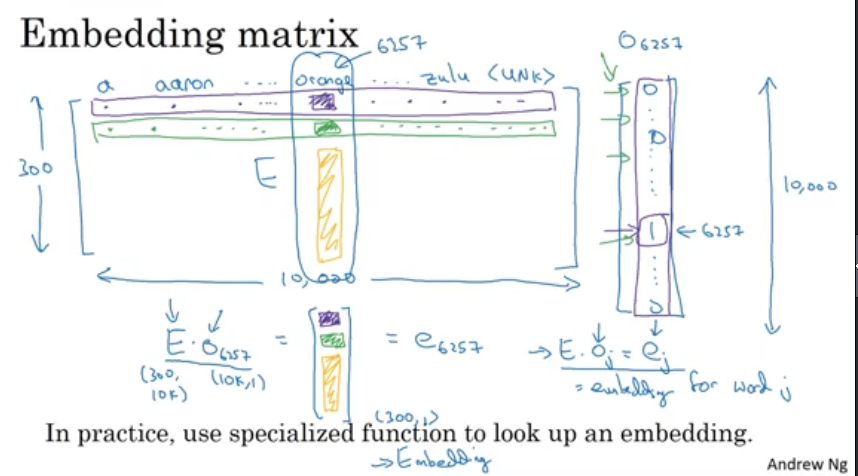 Embedding matrix
6257
O6257
a aaron .... orange .... zulu <UNK>
300
E
10,000
0
0
1 ← 6257
0
10,000
E · O6257 = [ ] = e6257
(300, 10K) (10K, 1)
(300, 1)
→ E · Oj = ej
= embedding for word j
In practice, use specialized function to look up an embedding.
→ Embedding
Andrew Ng